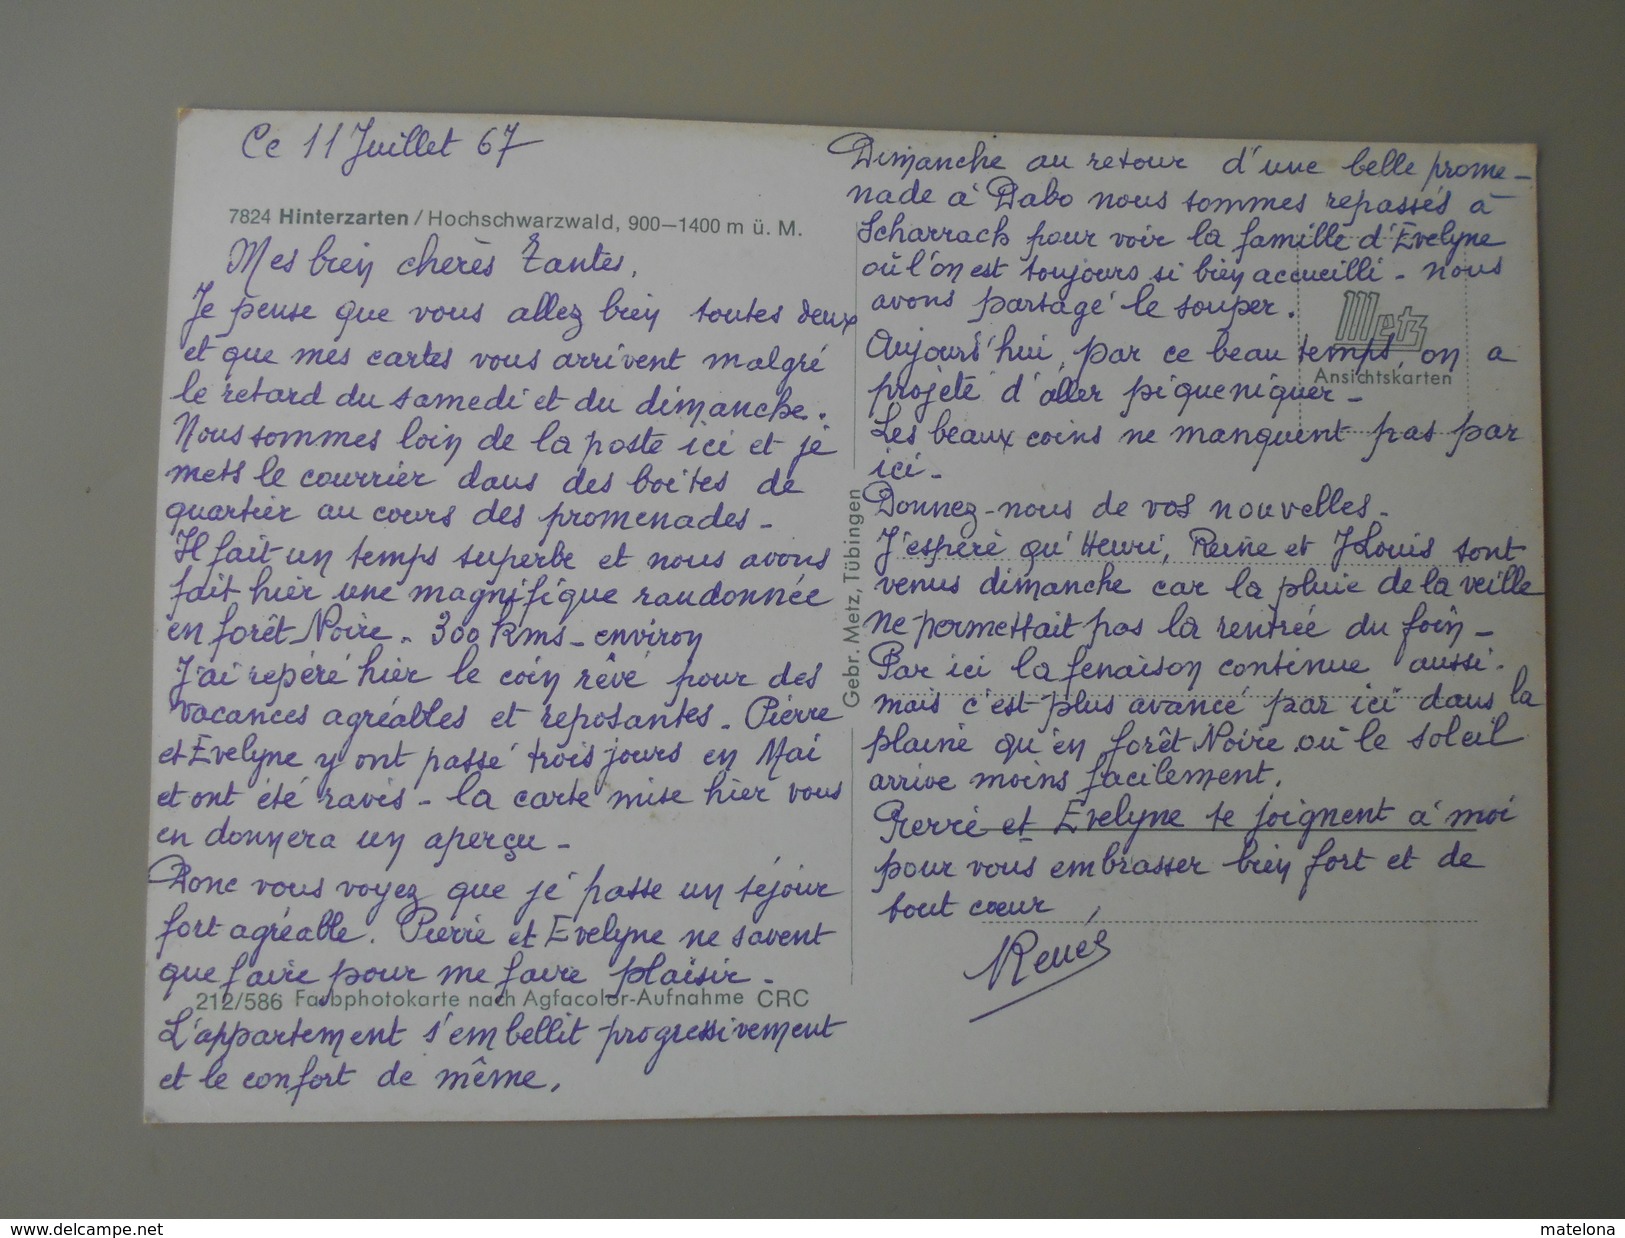 Ce 11 Juillet 67
7824 Hinterzarten / Hochschwarzwald, 900–1400 m ü. M.
Mes bien chères Tantes,
Je pense que vous allez bien toutes deux
et que mes cartes vous arrivent malgré
le retard du samedi et du dimanche.
Nous sommes loin de la poste ici et je
mets le courrier dans des boîtes de
quartier au cours des promenades -
Il fait un temps superbe et nous avons
fait hier une magnifique randonnée
en forêt Noire - 300 Kms - environ
J'ai repéré hier le coin rêvé pour des
vacances agréables et reposantes - Pierre
et Evelyne y ont passé trois jours en Mai
et ont été ravis - la carte mise hier vous
en donnera un aperçu -
Donc vous voyez que je passe un séjour
fort agréable. Pierre et Evelyne ne savent
que faire pour me faire plaisir -
212/586 Farbphotokarte nach Agfacolor-Aufnahme CRC
L'appartement s'embellit progressivement
et le confort de même.
Gebr. Metz, Tübingen
Dimanche au retour d'une belle prome-
nade à Dabo nous sommes repassés à
Scharrach pour voir la famille d'Evelyne
où l'on est toujours si bien accueilli - nous
avons partagé le souper.
Metz
Aujourd'hui, par ce beau temps, on a
Ansichtskarten
projeté d'aller piqueniquer -
Les beaux coins ne manquent pas par
ici -
Donnez-nous de vos nouvelles -
J'espère qu'Henri, Reine et J Louis sont
venus dimanche car la pluie de la veille
ne permettait pas la rentrée du foin -
Par ici la fenaison continue aussi -
mais c'est plus avancé par ici dans la
plaine qu'en forêt Noire où le soleil
arrive moins facilement.
Pierre et Evelyne se joignent à moi
pour vous embrasser bien fort et de
tout cœur,
Renée
www.delcampe.net
matelona